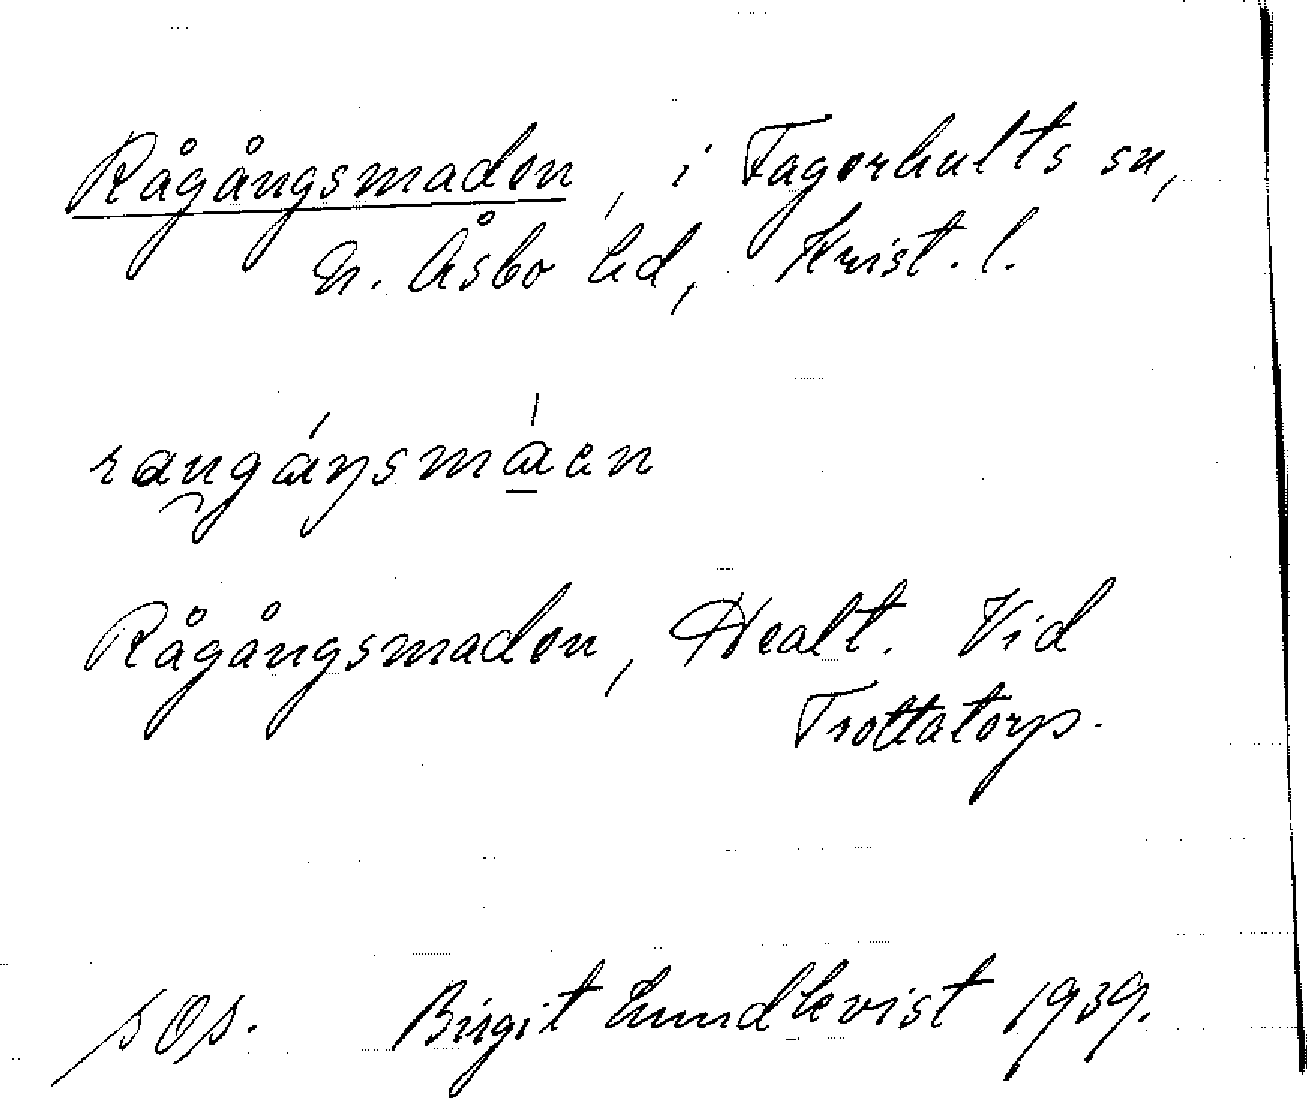 Rågångsmaden, i Fagerhults sn,
N. Åsbo hd, Krist. l.
raugáŋsmáen
Rågångsmaden, Äealt. Vid
Trottatorp.
sOs. Birgit Lundkvist 1939.